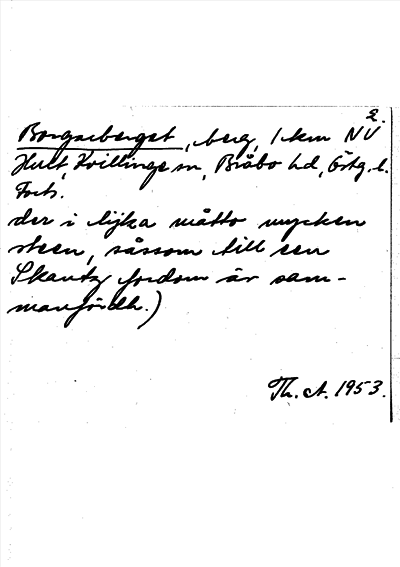 2.
Borgareberget, berg, 1 km NV
Hult, Kvillinge sn, Bråbo hd, Östg. l.
Forts.
der i lijka måtto mycken
steen, såssom till een
Skantz fordom är sam-
manfördh.)
Th. A. 1953.